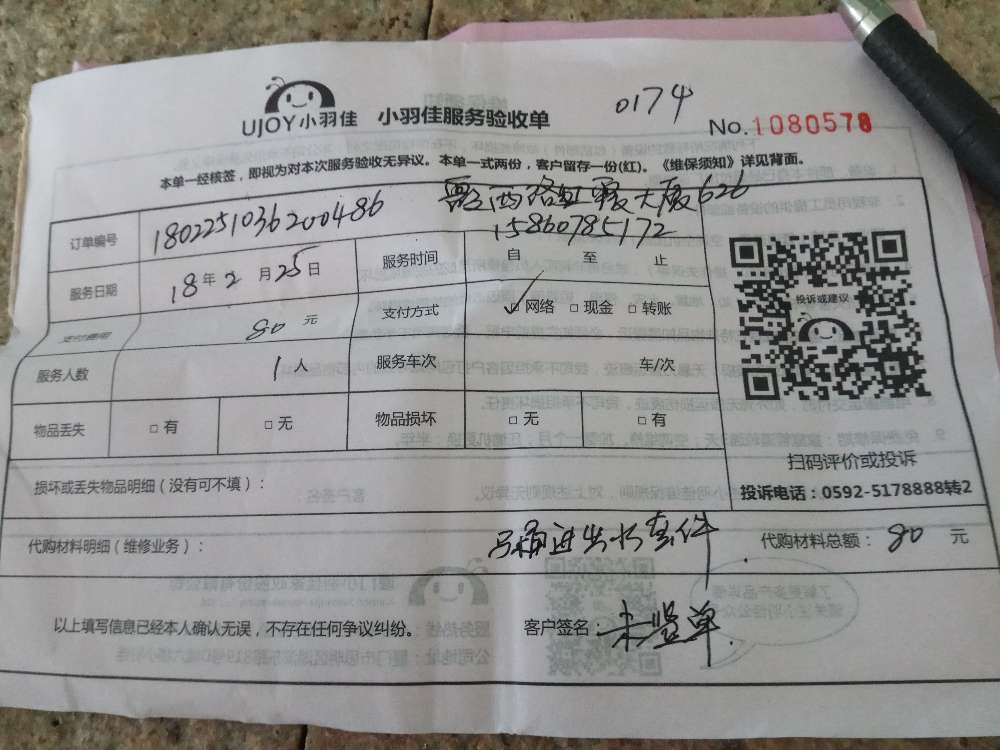 UJOY小羽佳 小羽佳服务验收单 0174 No.1080578
本单一经核签，即视为对本次服务验收无异议。本单一式两份，客户留存一份(红)。《维保须知》详见背面。
西路虹 大厦626
订单编号 180225103620​0486 15860785172
服务日期 18年2月25日 服务时间 自 至 止
支付费用 80元 支付方式 ☑网络 □现金 □转账
投诉或建议
服务人数 1人 服务车次 车/次
物品丢失 □有 □无 物品损坏 □无 □有
扫码评价或投诉
损坏或丢失物品明细（没有可不填）： 投诉电话：0592-5178888转2
代购材料明细（维修业务）： 马桶进出水套件 代购材料总额：80元
以上填写信息已经本人确认无误，不存在任何争议纠纷。 客户签名：未签单